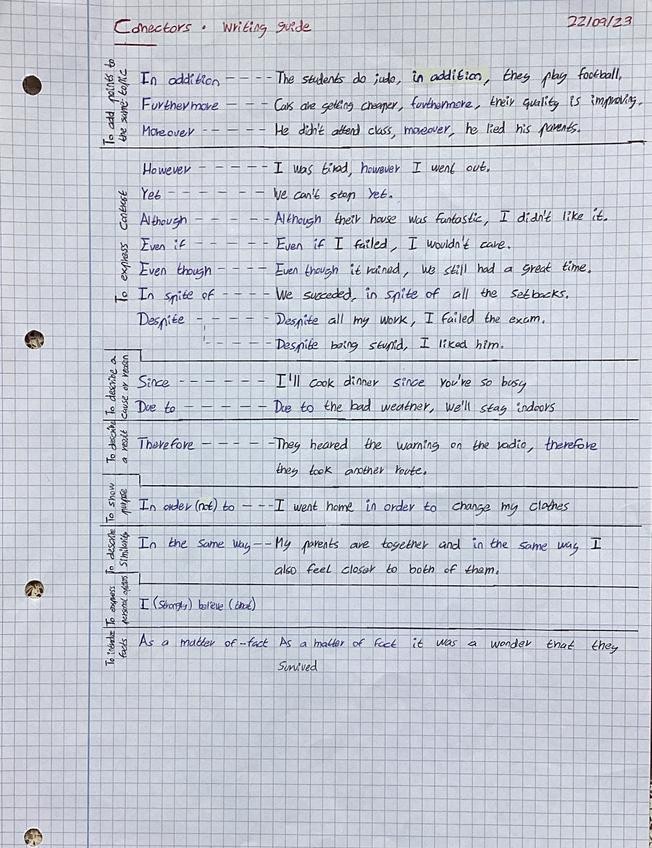 Conectors · Writing guide 22/09/23
To add points to the same topic
In addition - - - - The students do judo, in addition, they play football.
Furthermore - - - Cars are getting cheaper, furthermore, their quality is improving.
Moreover - - - - - He didn't attend class, moreover, he lied his parents.
To express contrast
However - - - - - I was tired, however I went out.
Yet - - - - - - We can't stop yet.
Although - - - - - Although their house was fantastic, I didn't like it.
Even if - - - - - Even if I failed, I wouldn't care.
Even though - - - - Even though it rained, we still had a great time.
In spite of - - - - We succeded, in spite of all the setbacks.
Despite - - - - - Despite all my work, I failed the exam.
- - - - - Despite being stupid, I liked him.
To describe a cause or reason
Since - - - - - - I'll cook dinner since you're so busy
Due to - - - - - - Due to the bad weather, we'll stay indoors
To describe a result
Therefore - - - - - They heared the warning on the radio, therefore
they took another route.
To show purpose
In order (not) to - - - I went home in order to change my clothes
To describe similarity
In the same way - - My parents are together and in the same way I
also feel closer to both of them.
To express personal
I (strongly) believe (that)
To introduce facts
As a matter of - fact As a matter of fact it was a wonder that they
survived